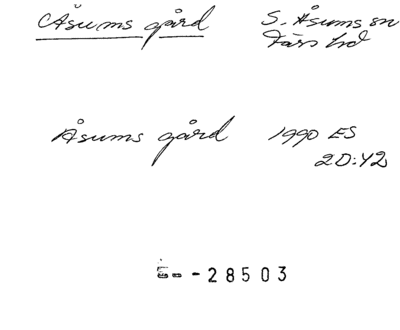 Åsums gård S. Åsums sn
Färs hd
Åsums gård 1990 ES
2D:42
28503